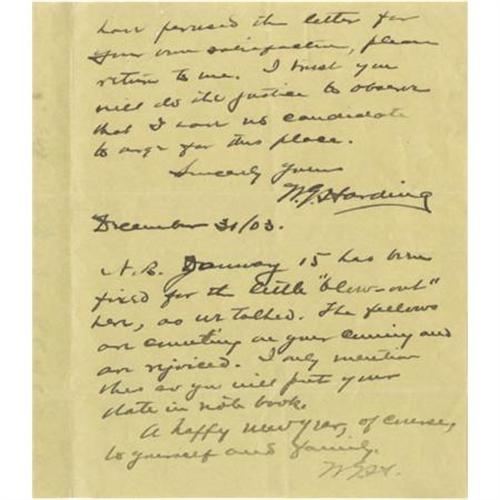 have perused the letter for
your own satisfaction, please
return to me. I trust you
will do the justice to observe
that I have no candidate
to urge for this place.
Sincerely Yours
W.G. Harding
December 31/03.
N.B. January 15 has been
fixed for the little "blow-out"
here, as we talked. The fellows
are counting on your coming and
are rejoiced. I only mention
this so you will put your
date in note book.
A happy new year, of course,
to yourself and family.
W.G.H.